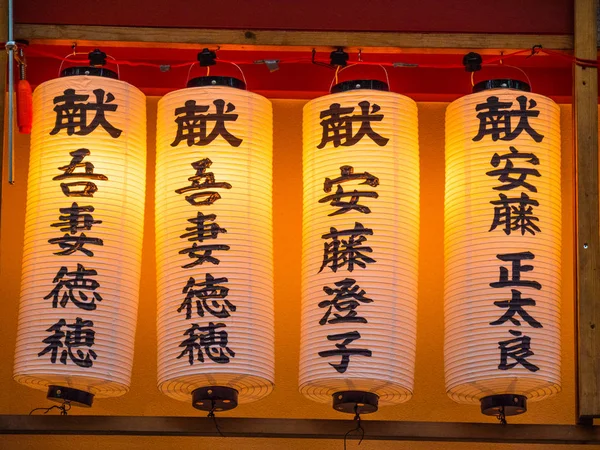 献 吾妻徳穂
献 吾妻徳穂
献 安藤澄子
献 安藤 正太良